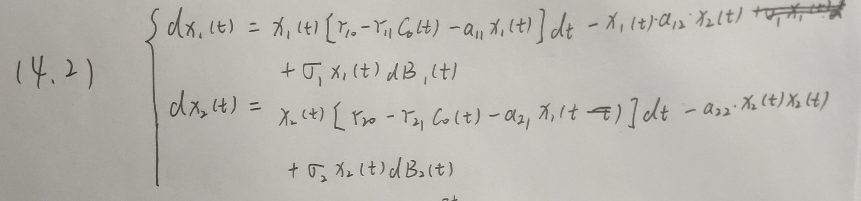 dx₁(t) = x₁(t)[r₁₀ - r₁₁ C₀(t) - a₁₁ x₁(t)]dt - x₁(t)·a₁₂·x₂(t)
(4.2) + σ₁ x₁(t) dB₁(t)
dx₂(t) = x₂(t)[r₂₀ - r₂₁ C₀(t) - a₂₁ x₁(t-τ)]dt - a₂₂·x₂(t)x₂(t)
+ σ₂ x₂(t) dB₂(t)